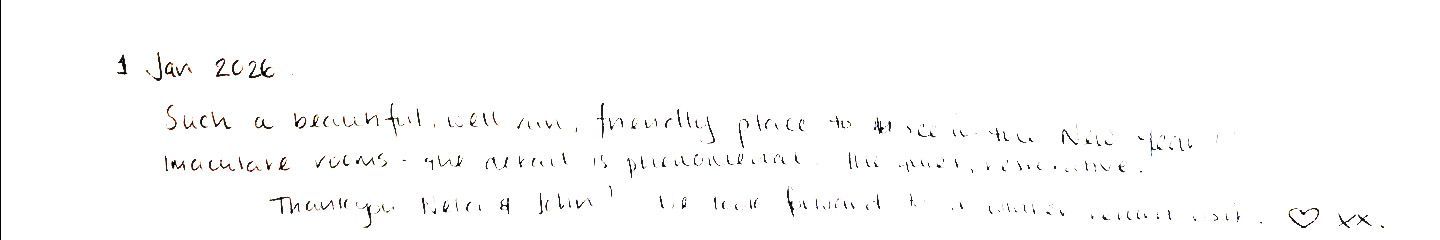 1 Jan 2026
Such a beautiful, well run, friendly place to see in the New Year!
Imaculate rooms - the detail is phenomenal. The quiet,
Thankyou & John! We look forward to a visit. ♡ xx.